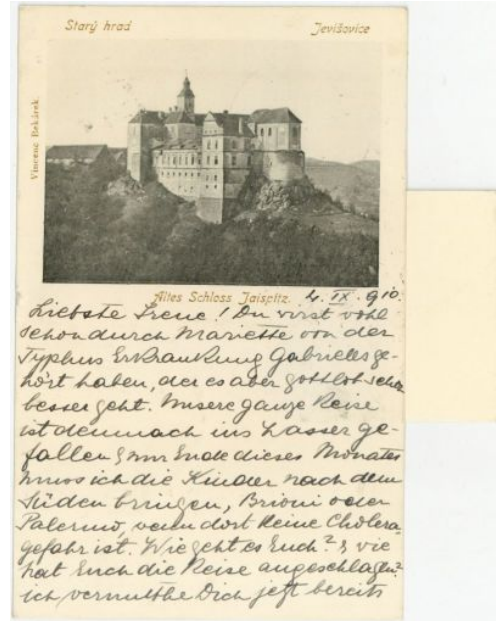 Starý hrad Jevišovice
Vincenc Bekárek
Altes Schloss Jaispitz. 4. IX. 910.
Liebste Irene! Du wirst wohl
schon durch Mariette von der
Typhus Erkrankung Gabrieles ge-
hört haben, der es aber gottlob schon
besser geht. Unsere ganze Reise
ist demnach ins Wasser ge-
fallen & nur Ende dieses Monates
muss ich die Kinder nach dem
Süden bringen, Brioni oder
Palermo, wenn dort keine Cholera-
gefahr ist. Wie geht es Euch? & wie
hat Euch die Reise angeschlagen?
ich vermuthe Dich jetzt bereits